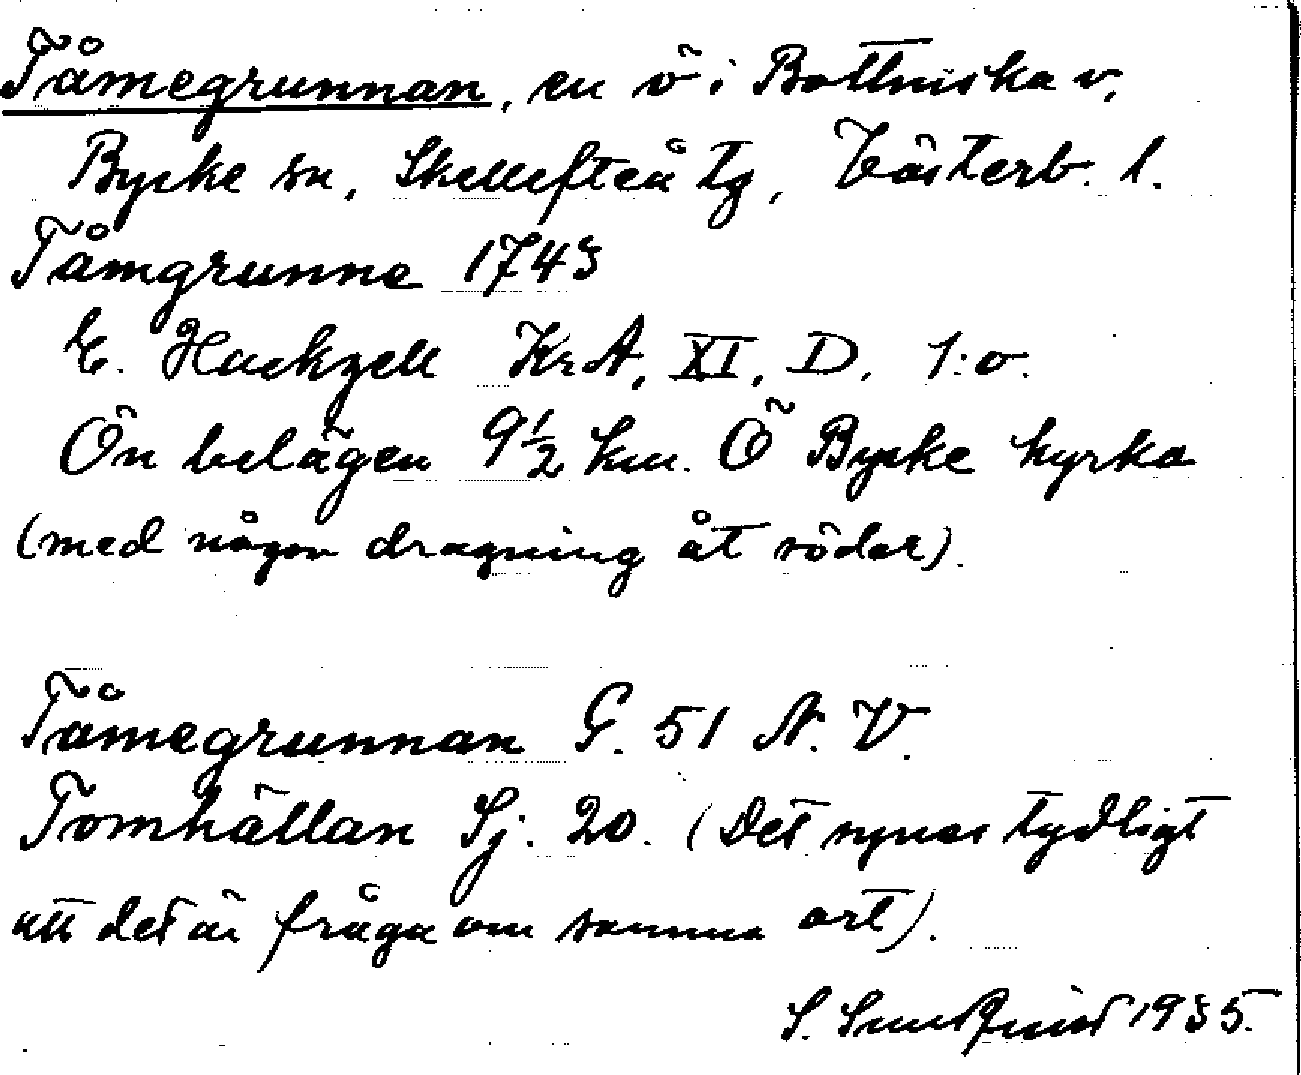 Tåmegrunnan, en ö i Bottniska v,
Byske sn, Skellefteå tg, Västerb. l.
Tåmgrunne 1743
E. Hackzell KrA, XI, D, 1:o.
Ön belägen 9½ km. Ö Byske kyrka
(med någon dragning åt söder).
Tåmegrunnan G. 51 N. V.
Tomhällan Sj. 20. (Det synes tydligt
att det är fråga om samma ort).
S. 1935.